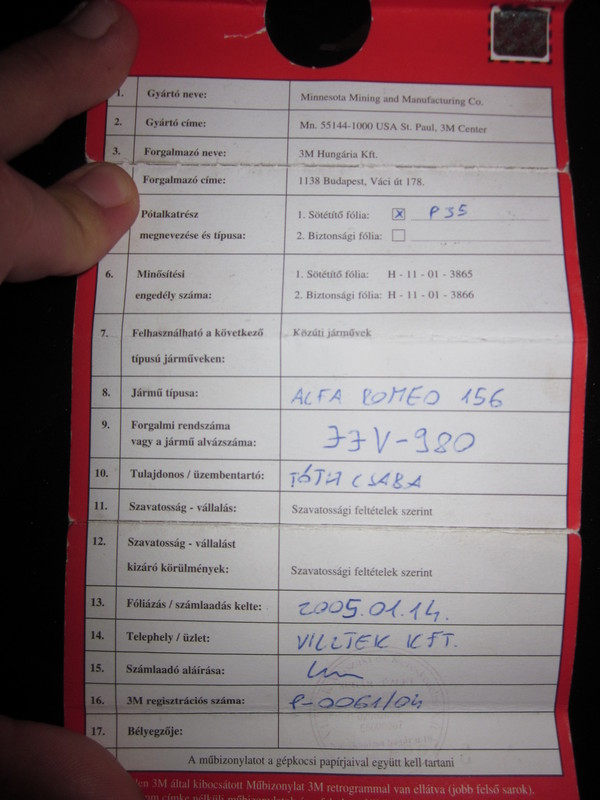 1. Gyártó neve: Minnesota Mining and Manufacturing Co.
2. Gyártó címe: Mn. 55144-1000 USA St. Paul, 3M Center
3. Forgalmazó neve: 3M Hungária Kft.
Forgalmazó címe: 1138 Budapest, Váci út 178.
Pótalkatrész 1. Sötétítő fólia: X P35
megnevezése és típusa: 2. Biztonsági fólia:
6. Minősítési 1. Sötétítő fólia: H - 11 - 01 - 3865
engedély száma: 2. Biztonsági fólia: H - 11 - 01 - 3866
7. Felhasználható a következő Közúti járművek
típusú járműveken:
8. Jármű típusa: ALFA ROMEO 156
9. Forgalmi rendszáma
vagy a jármű alvázszáma: JJV-980
10. Tulajdonos / üzembentartó: TÓTH CSABA
11. Szavatosság - vállalás: Szavatossági feltételek szerint
12. Szavatosság - vállalást
kizáró körülmények: Szavatossági feltételek szerint
13. Fóliázás / számlaadás kelte: 2005.01.14.
14. Telephely / üzlet: VILLTEK KFT.
15. Számlaadó aláírása:
16. 3M regisztrációs száma: P-0061/04
17. Bélyegzője:
A műbizonylatot a gépkocsi papírjaival együtt kell tartani
3M által kibocsátott Műbizonylat 3M retrogrammal van ellátva (jobb felső sarok).